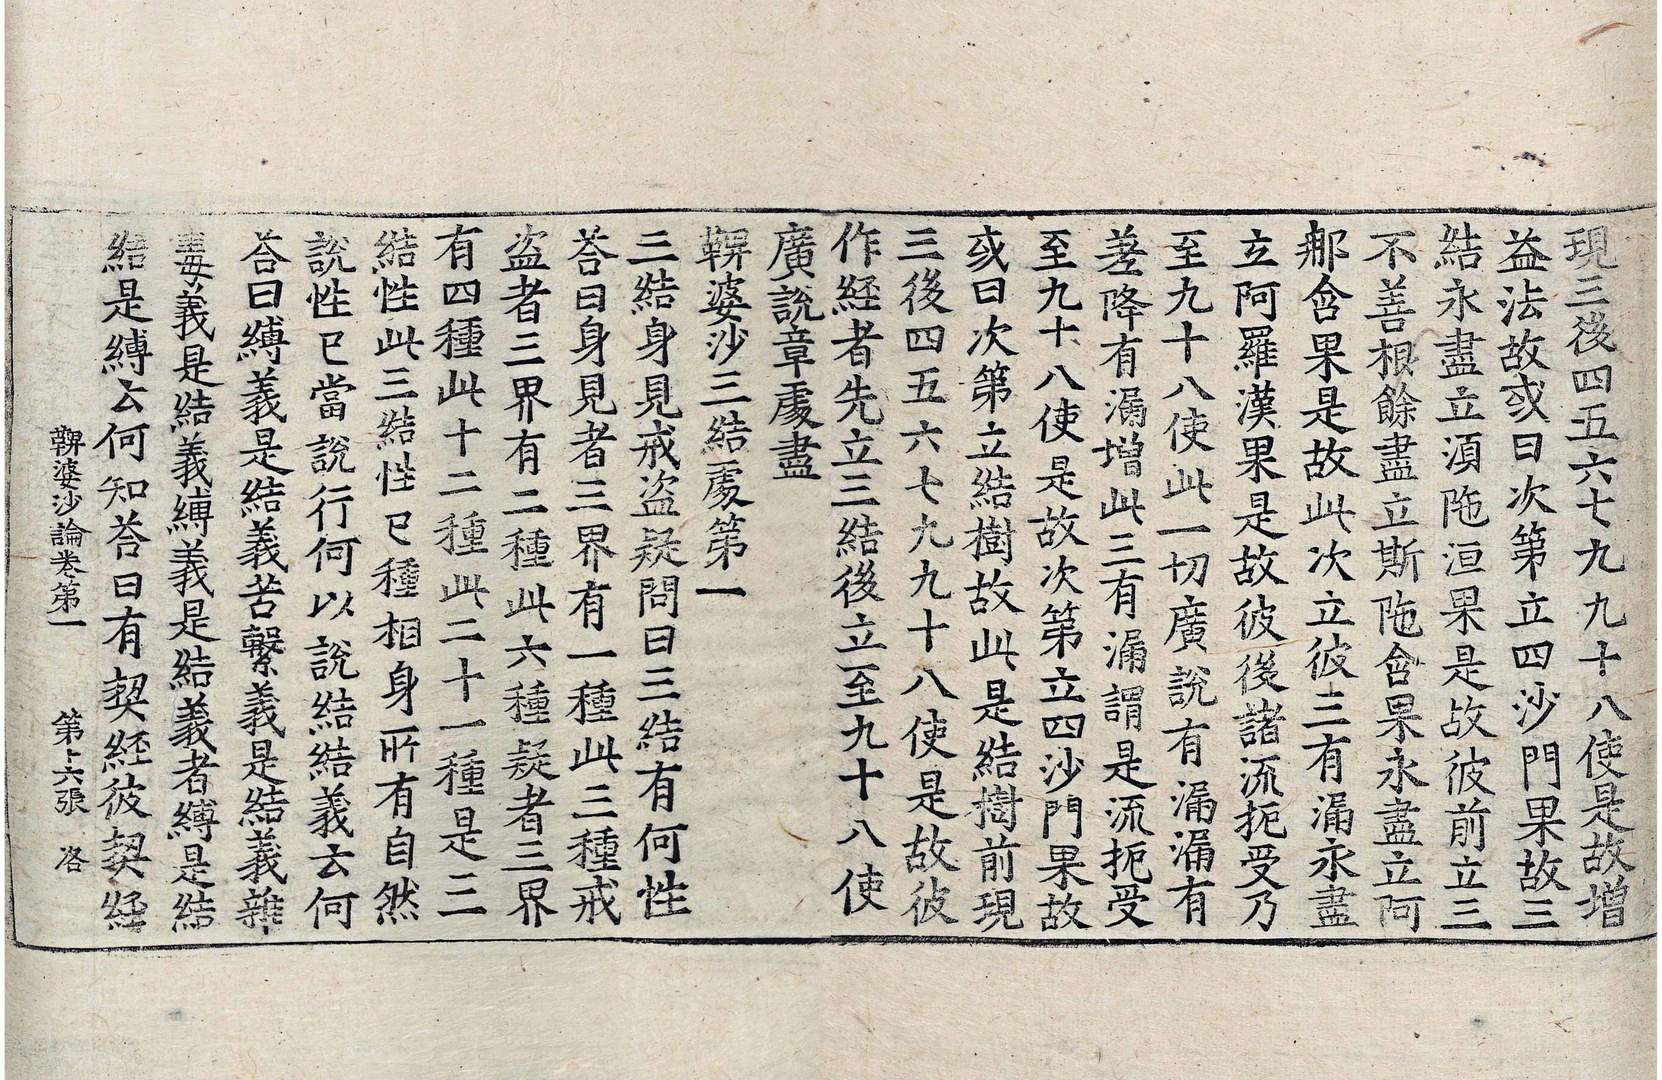 現三後四五六七九九十八使是故增
益法故或曰次第立四沙門果故三
結永盡立湏陁洹果是故彼前立三
不善根餘盡立斯陁含果永盡立阿
那含果是故此次立彼三有漏永盡
立阿羅漢果是故彼後諸流扼受乃
至九十八使此一切廣說有漏漏有
差降有漏增此三有漏謂是流扼受
至九十八使是故次第立四沙門果故
或曰次第立結樹故此是結樹前現
三後四五六七九九十八使是故彼
作經者先立三結後立至九十八使
廣說章處盡
鞞婆沙三結處第一
三結身見戒盗疑問曰三結有何性
荅曰身見者三界有一種此三種戒
盗者三界有二種此六種疑者三界
有四種此十二種此二十一種是三
結性此三結性已種相身所有自然
說性已當說行何以說結結義云何
荅曰縛義是結義苦繫義是結義雜
毒義是結義縛義是結義者縛是結
結是縛云何知荅曰有契經彼契經
鞞婆沙論卷第一 第十六張 洛